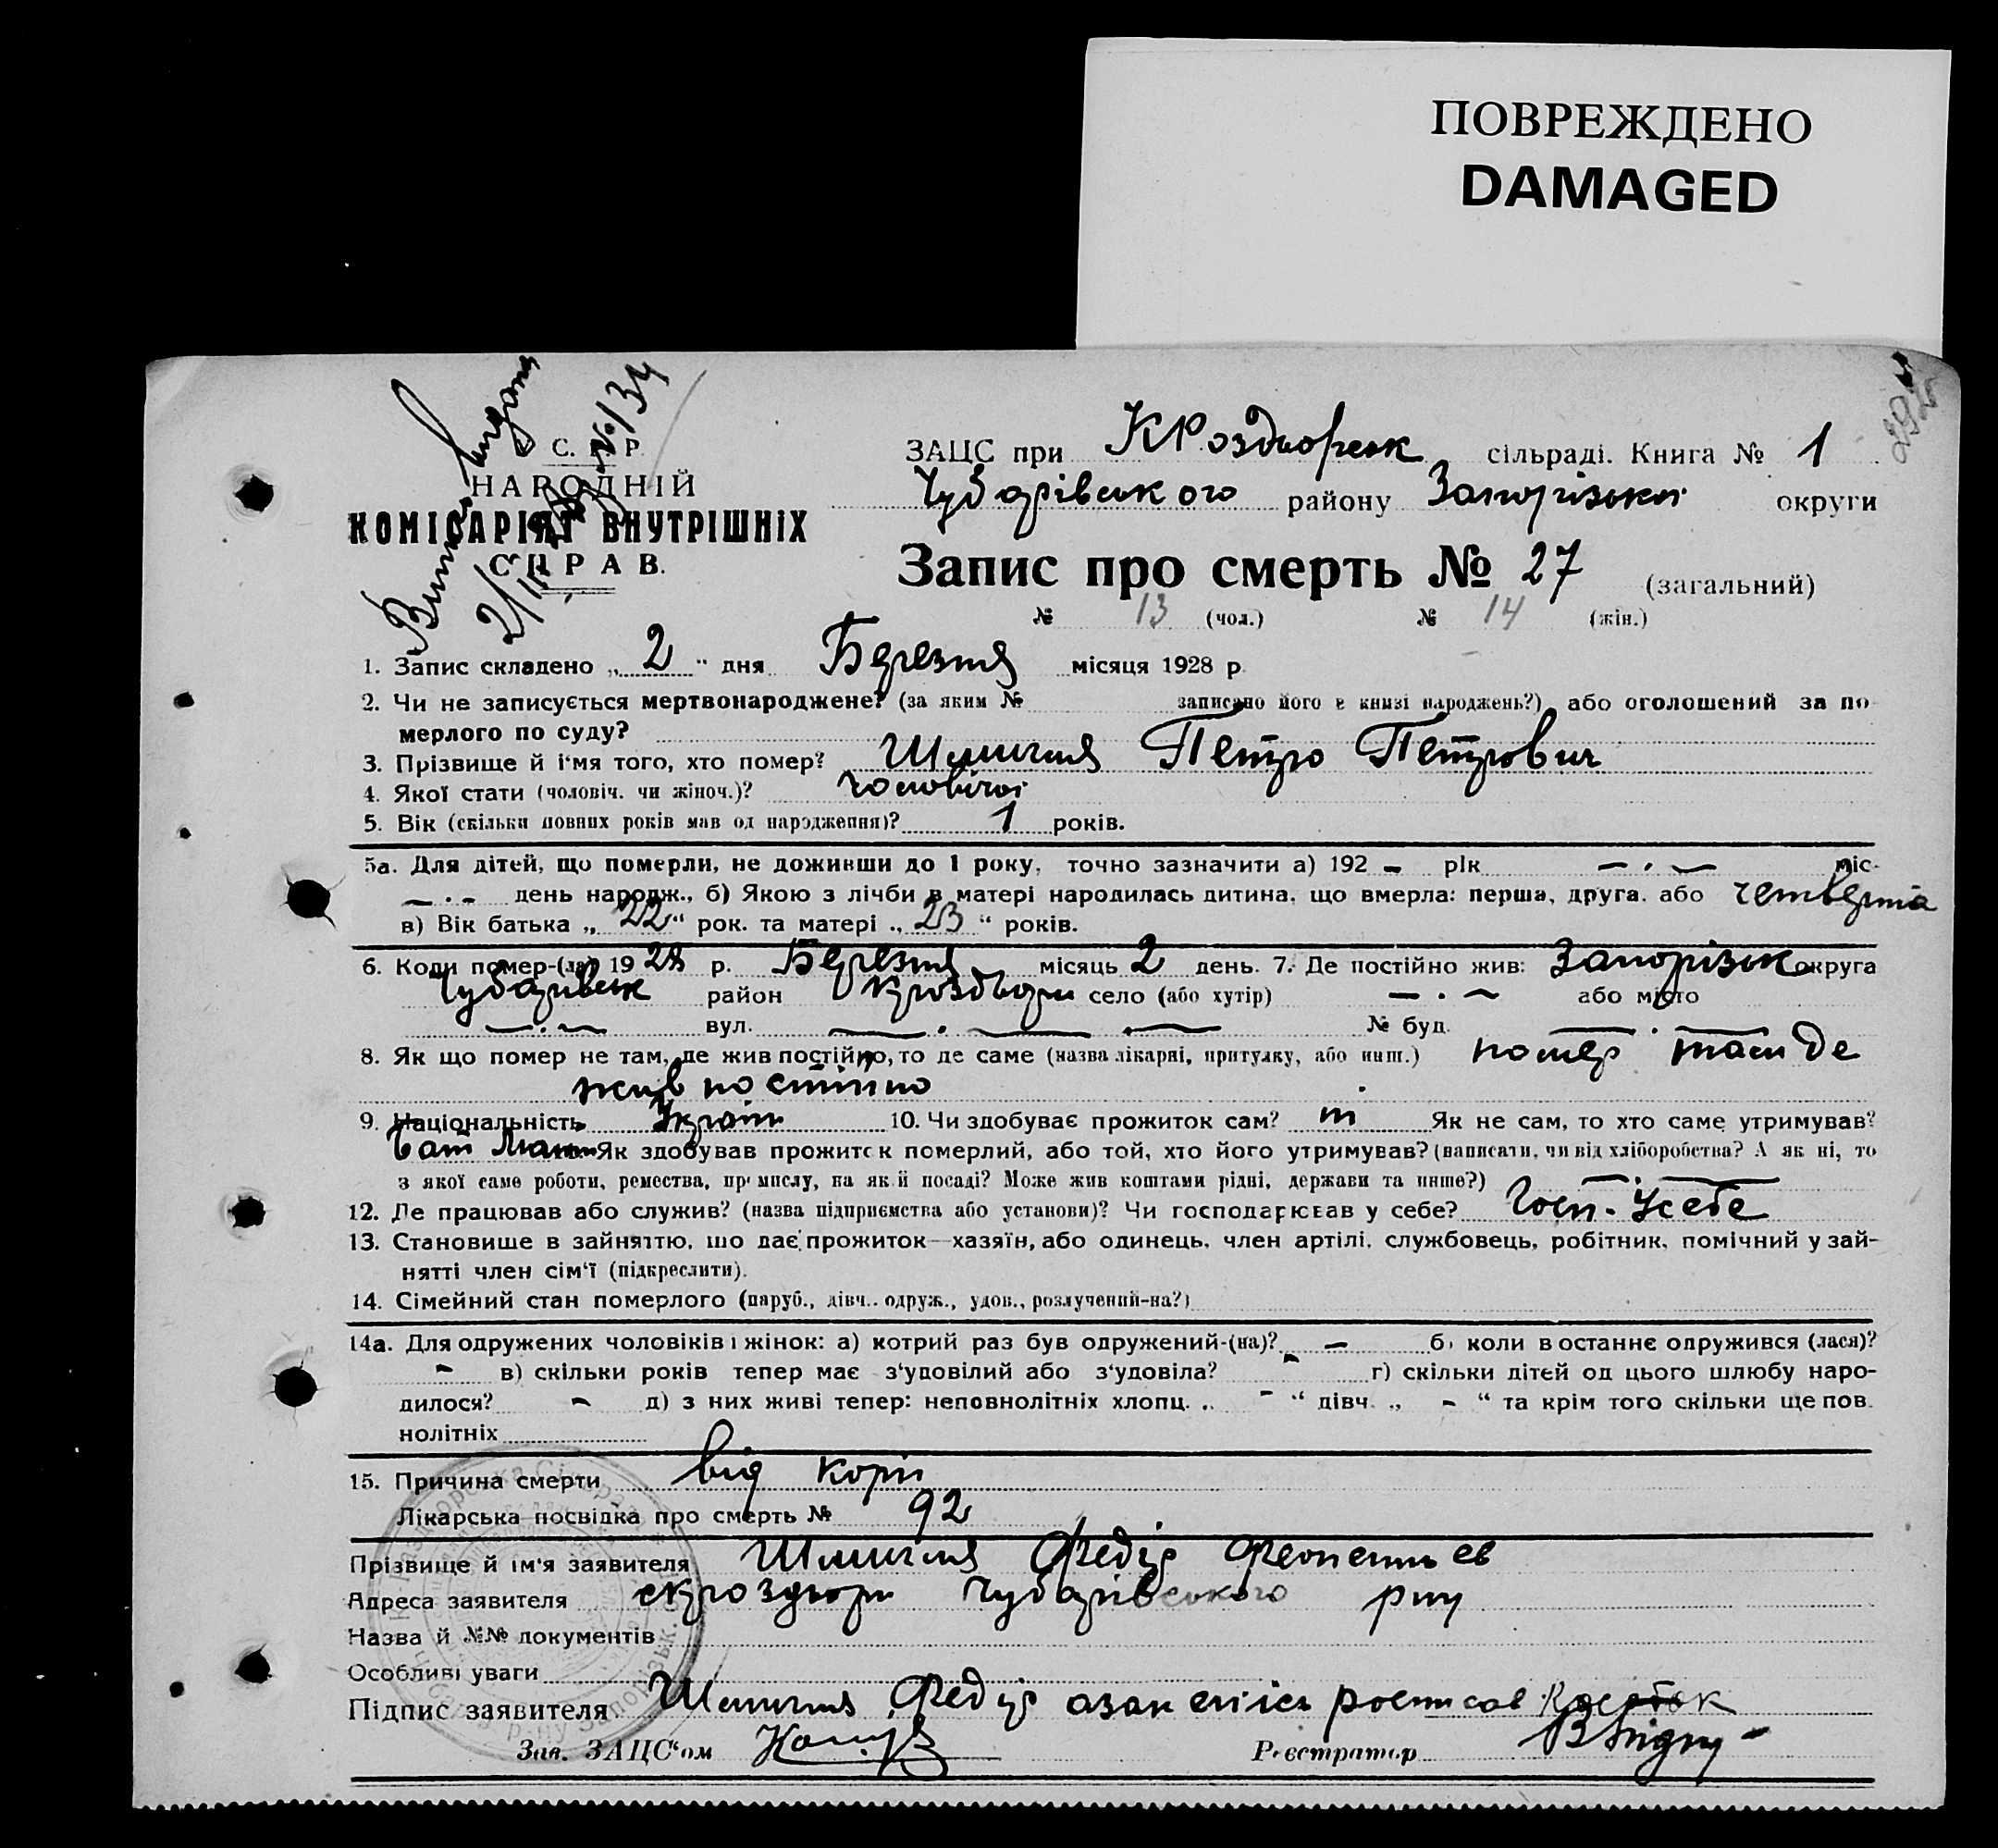 ПОВРЕЖДЕНО
DAMAGED
292
Витяг видано
2/III 28 р. № 134
НАРОДНІЙ
КОМІСАРІЯТ ВНУТРІШНІХ
СПРАВ.
ЗАЦС при К Роздорськ сільраді. Книга № 1
Чубарівського району Запорізької округи
Запис про смерть № 27 (загальний)
№ 13 (чол.) № 14 (жін.)
1. Запис складено „ 2 " дня Березня місяця 1928 р.
2. Чи не записується мертвонароджене? (за яким № записано його в книзі народжень?) або оголошений за по
мерлого по суду?
3. Прізвище й і'мя того, хто помер? Петро Петрович
4. Якої стати (чоловіч. чи жіноч.)? чоловічої
5. Вік (скільки повних років мав од народження)? 1 років.
5а. Для дітей, що померли, не доживши до 1 року, точно зазначити а) 192 – рік – . – міс.
– . – день народж., б) Якою з лічби в матері народилась дитина, що вмерла: перша, друга, або четверта
в) Вік батька „ 22 “ рок. та матері „ 23 “ років.
6. Коли помер-(ла) 19 28 р. Березня місяць 2 день. 7. Де постійно жив: Запорізьк округа
Чубарівськ район Кроздори село (або хутір) – . – або місто
– . – вул. – . – – № буд.
8. Як що помер не там, де жив постійно, то де саме (назва лікарні, притулку, або инш.) помер там де
жив постійно
9. Національність Україн 10. Чи здобуває прожиток сам? ні Як не сам, то хто саме утримував?
Бат Мати Як здобував прожиток померлий, або той, хто його утримував? (написати, чи від хліборобства? А як ні, то
з якої саме роботи, ремества, промислу, на якій посаді? Може жив коштами рідні, держави та инше?)
12. Де працював або служив? (назва підприємства або установи)? Чи господарював у себе? Госп. Усебе
13. Становище в зайняттю, що дає прожиток—хазяїн, або одинець, член артілі, службовець, робітник, помічний у зай-
нятті член сім'ї (підкреслити).
14. Сімейний стан померлого (паруб., дівч.. одруж., удов., розлучений-на?)
14а. Для одружених чоловіків і жінок: а) котрий раз був одружений-(на)? – б) коли в останнє одружився (лася)?
– в) скільки років тепер має з'удовілий або з'удовіла? – г) скільки дітей од цього шлюбу наро-
дилося? – д) з них живі тепер: неповнолітніх хлопц. „ – “ дівч. „ – “ та крім того скільки ще пов.
нолітніх
15. Причина смерти від корі
Лікарська посвідка про смерть № 92
Прізвище й ім'я заявителя Федір
Адреса заявителя скроздори Чубарівського рну
Назва й №№ документів
Особливі уваги
Підпис заявителя Федір
Зав. ЗАЦС'ом
Реєстратор